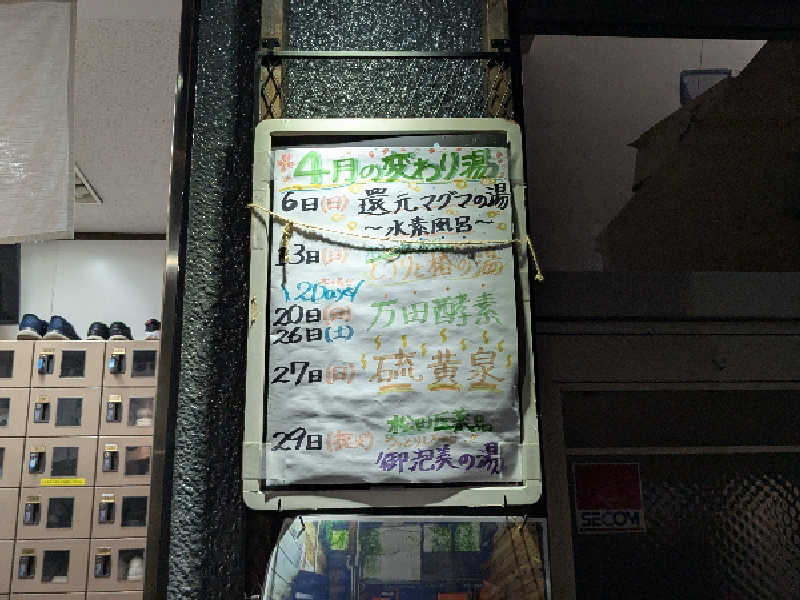 4月の変わり湯
6日(日) 還元マグマの湯
～水素風呂～
13日(日) の湯
2Days
20日(日) 万田酵素
26日(土)
27日(日) 硫黄泉
29日(祝火)
御泡美の湯
SECOM